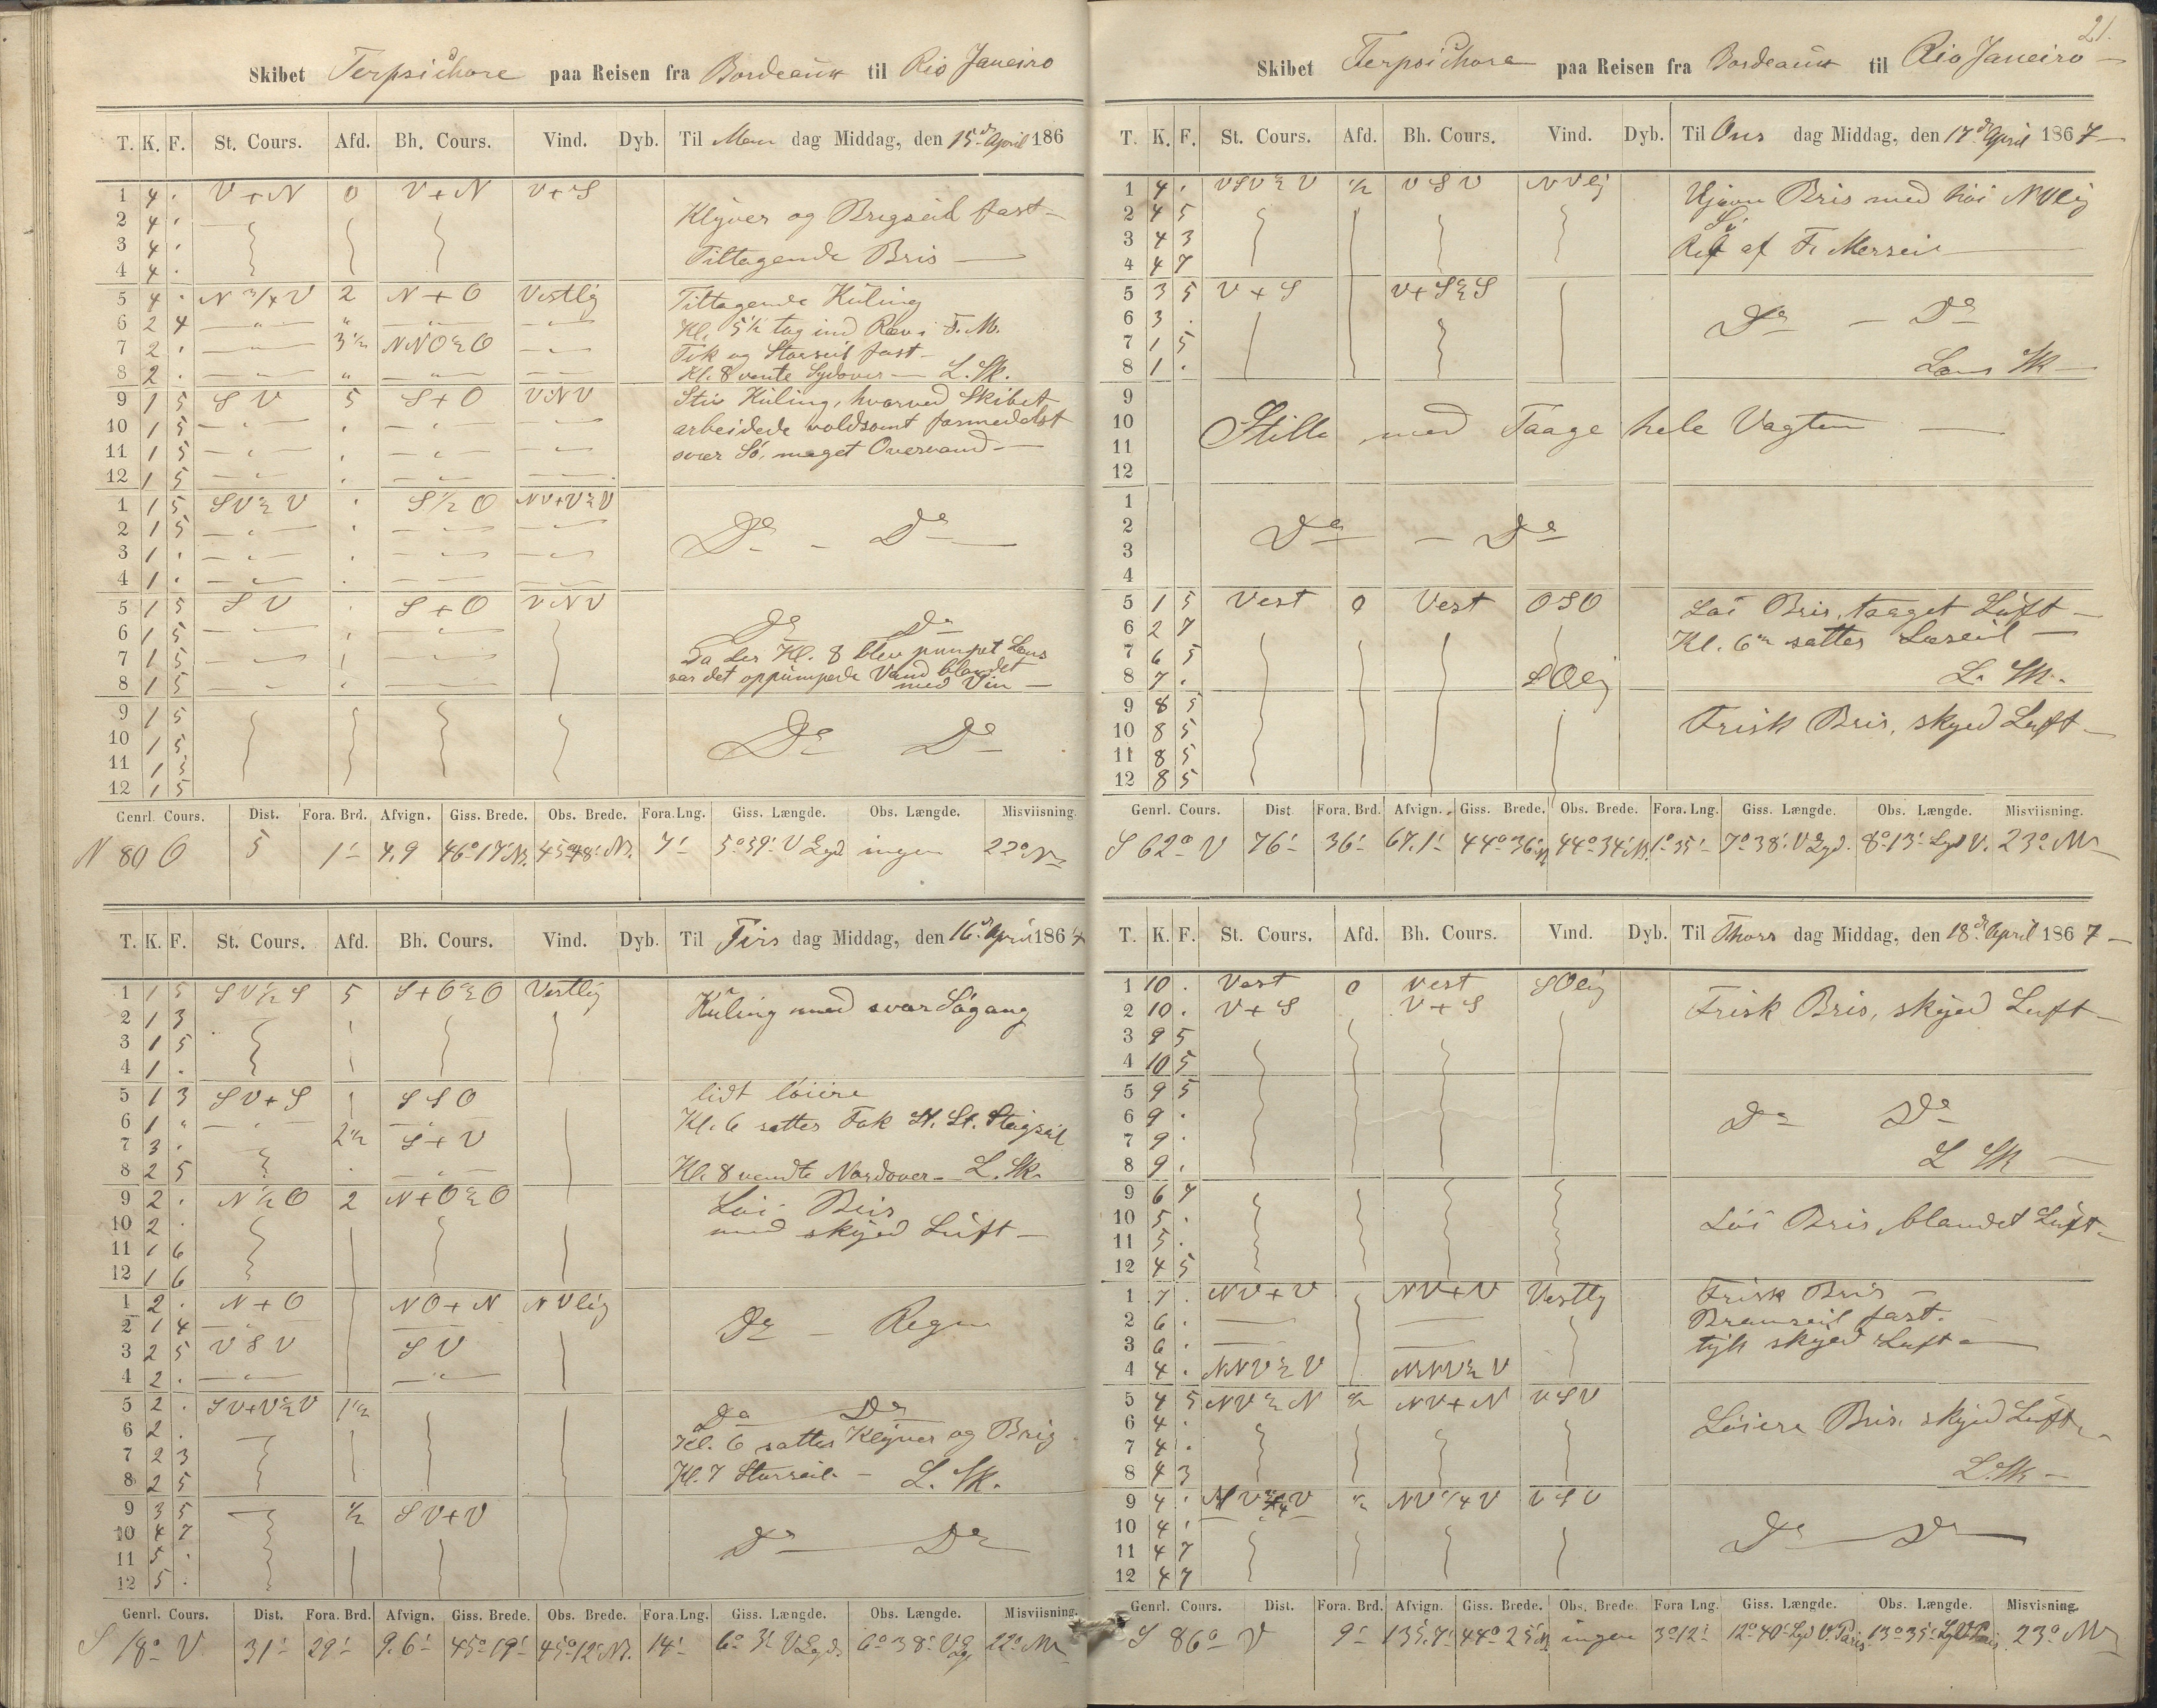 Skibet Terpsichore paa Reisen fra Bordeaux til Rio Janeiro
T. K. F. St. Cours. Afd. Bh. Cours. Vind. Dyb. Til Man dag Middag, den 15d April 186
1 4 . V + N 0 V + N V + S
2 4 . Klyver og Brigseil fast
3 4 . Tiltagende Bris
4 4 .
5 4 . N 3/4 V 2 N + O Vestlig Tiltagende Kuling
6 2 4 Kl. 5 1/2 tog ind Rev i F. M.
7 2 . 3 1/2 NNO 1/2 O Fok og Storseil fast
8 2 . Kl. 8 vente Sydover L. Sk.
9 1 5 S V 5 S + O V N V Stiv Kuling, hvorved Skibet
10 1 5 arbeidede voldsomt formedelst
11 1 5 svær Sö, meget Overvand
12 1 5
1 1 5 SV 1/2 V S 1/2 O NV+V 1/2 V
2 1 5 Do - Do
3 1 .
4 1 .
5 1 5 S V S + O V N V
6 1 5 Do Do
7 1 5 Da der Kl. 8 blev pumpet Lens
8 1 5 var det oppumpede Vand blandet
med Vin
9 1 5
10 1 5 Do Do
11 1 5
12 1 5
Genrl. Cours. Dist. Fora. Brd. Afvign. Giss. Brede. Obs. Brede. Fora. Lng. Giss. Længde. Obs. Længde. Misviisning.
N 80 O 5 1' 4.9 46o 17' N. 45o 48' N. 7' 5o 39' V Lgd ingen 22o N
T. K. F. St. Cours. Afd. Bh. Cours. Vind. Dyb. Til Tirs dag Middag, den 16d April 1867
1 1 5 SV 1/2 S 5 S + O 1/2 O Vestlig
2 1 3 Kuling med svær Sögang
3 1 5
4 1 .
5 1 3 SV + S S S O lidt löiere
6 1 . Kl. 6 sattes Fok St. St. Stagseil
7 3 . 2 1/2 S + V
8 2 5 Kl. 8 vendte Nordover L. Sk.
9 2 . N 1/2 O 2 N + O 1/2 O Löi Bris
10 2 . med skyed Luft
11 1 6
12 1 6
1 2 . N + O NO + N N Vlig
2 1 4 Do - Regn
3 2 5 V S V S V
4 2 .
5 2 . SV+V 1/2 V 1 1/2 Do Do
6 2 . Kl. 6 sattes Klyver og Brig
7 2 3
8 2 5 Kl. 7 Storseil. L. Sk.
9 3 5 1/2 SV+V
10 4 7 Do Do
11 5 .
12 5 .
Genrl. Cours. Dist. Fora. Brd. Afvign. Giss. Brede. Obs. Brede. Fora. Lng. Giss. Længde. Obs. Længde. Misviisning.
S 18o V 31' 29' 9.6' 45o 19' 45o 12' N. 14' 6o 3' V Lgd. 6o 38' V Lg. 22o N
21.
Skibet Terpsichore paa Reisen fra Bordeaux til Rio Janeiro
T. K. F. St. Cours. Afd. Bh. Cours. Vind. Dyb. Til Ons dag Middag, den 17d April 1867
1 4 . VSV 1/2 V 1/2 V S V N Vlig Ujevn Bris med höi N Vlig
2 4 5 Sö
3 4 3 Rif af F. Merseil
4 4 7
5 3 5 V + S V + S 1/2 S
6 3 . Do - Do
7 1 5
8 1 . Lens Sk
9
10 Stille med Taage hele Vagten
11
12
1
2 Do - Do
3
4
5 1 5 Vest 0 Vest O S O Löi Bris, taaget Luft
6 2 7 Kl. 6 sattes Læseil
7 6 5
8 7 . S Olig L. Sk.
9 8 5 Frisk Bris, skyed Luft
10 8 5
11 8 5
12 8 5
Genrl. Cours. Dist Fora. Brd. Afvign. Giss. Brede. Obs. Brede. Fora. Lng. Giss. Længde. Obs. Længde. Misviisning.
S 62o V 76' 36' 67.1' 44o 36' N 44o 34' N. 1o 35' 7o 38' V Lgd. 8o 13' Lgd V. 23o N
T. K. F. St. Cours. Afd. Bh. Cours. Vind. Dyb. Til Thors dag Middag, den 18d April 1867
1 10 . Vest 0 Vest S Olig
2 10 . V + S V + S Frisk Bris, skyed Luft
3 9 5
4 10 5
5 9 5
6 9 . Do Do
7 9 .
8 9 . L Sk
9 6 7
10 5 . Löi Bris, blandet Luft
11 5 .
12 4 5
1 7 . NV+V NV+V Vestlg Frisk Bris
2 6 . Bramseil fast.
3 6 . tyk skyed Luft
4 4 . NNV 1/2 V NNV 1/2 V
5 4 5 NV 1/2 N 1/2 NV+N V S V
6 4 . Löiere Bris, skyed Luft
7 4 .
8 4 3 L. Sk
9 4 . 1/2 NV 1/4 V V S V
10 4 . Do Do
11 4 7
12 4 7
Genrl. Cours. Dist. Fora. Brd. Afvign. Giss. Brede. Obs. Brede Fora Lng. Giss. Længde. Obs. Længde. Misvisning.
S 86o V 9' 135.7' 44o 25' N ingen 3o 12' 12o 40' Lgd V. Paris 13o 35' Lgd V Paris 23o N